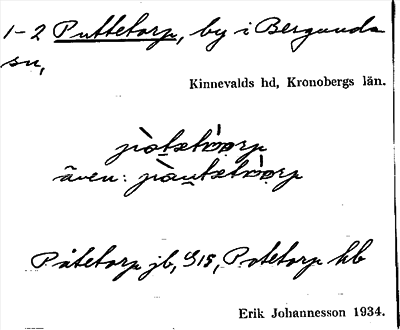 1-2 Puttetorp, by i Bergunda
sn,
Kinnevalds hd, Kronobergs län.
även:
Påtetorp jb, S15, Potetorp hb
Erik Johannesson 1934.